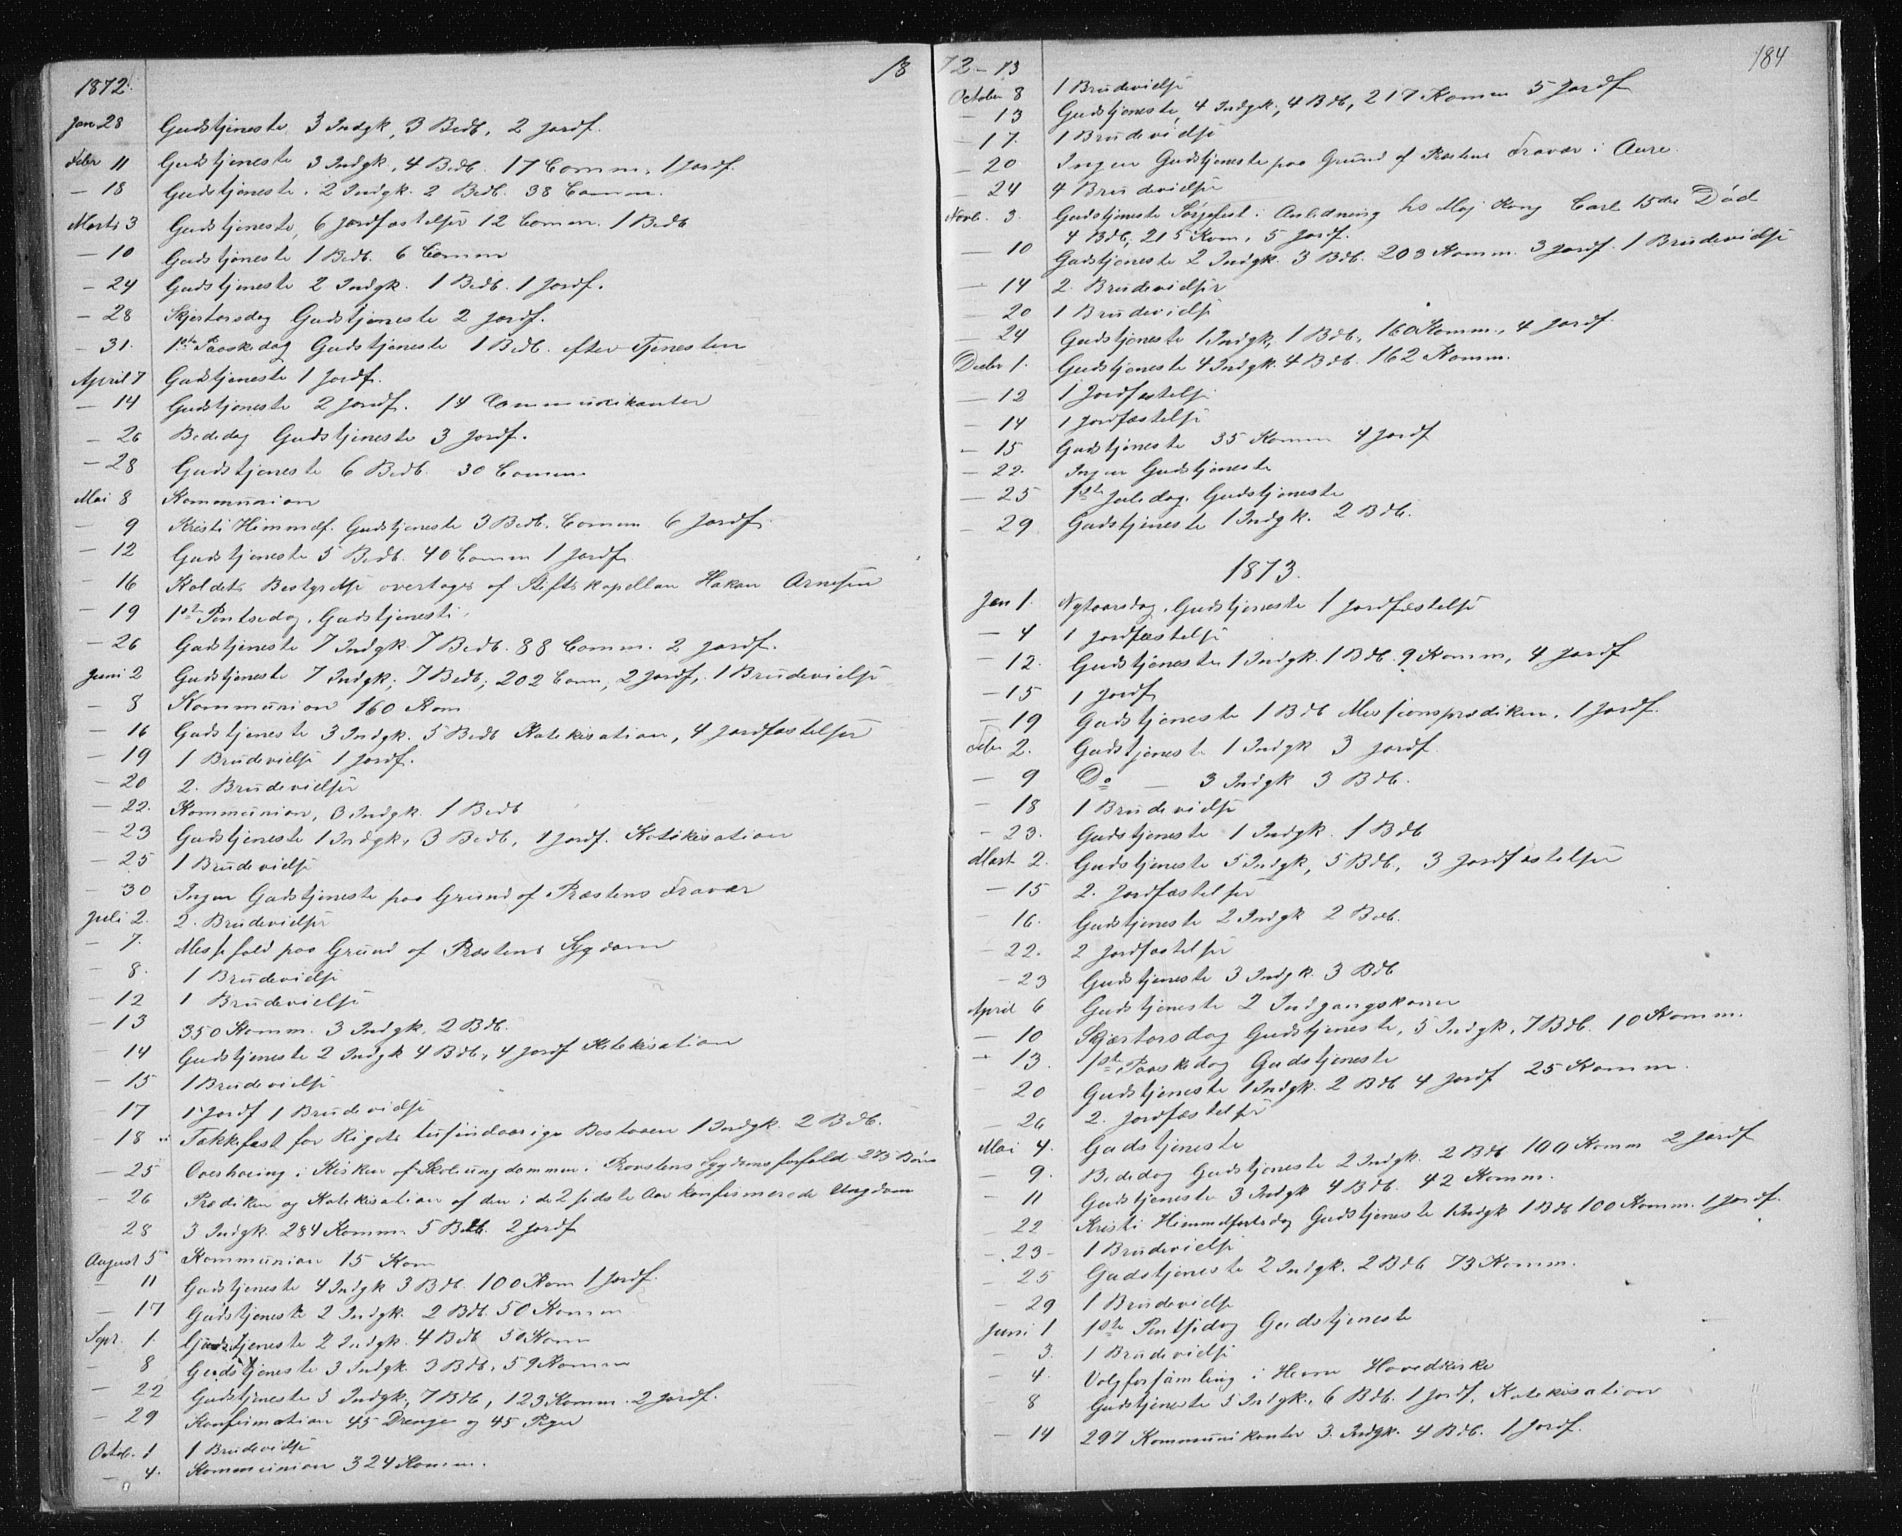 1872.
18
Jan 28 Gudstjeneste 3 Indgk, 3 Bedb, 2 Jordf.
Febr 11 Gudstjeneste 3 Indgk, 4 Bedb. 17 Comm, 1 Jordf.
— 18 Gudstjeneste. 2 Indgk. 2 Bedb. 38 Comm.
Marts 3 Gudstjeneste, 6 Jordfæstelser 12 Comm. 1 Bedb
— 10 Gudstjeneste 1 Bedb. 6 Comm
— 24 Gudstjeneste 2 Indgk. 1 Bedb. 1 Jordf.
— 28 Skjertorsdag Gudstjeneste 2 Jordf.
— 31. 1ste Paaskedag Gudstjeneste 1 Bedb. efter Tjenesten
April 7 Gudstjeneste 1 Jordf.
— 14 Gudstjeneste 2 Jordf. 14 Communikanter
— 26 Bededag Gudstjeneste 3 Jordf.
— 28 Gudstjeneste 6 Bedb 30 Comm.
Mai 8 Kommunion
— 9 Kristi Himmelf. Gudstjeneste 3 Bedb. Comm 6 Jordf.
— 12 Gudstjeneste 5 Bedb. 40 Comm 1 Jordf
— 16 Kaldets Bestyrelse overtages af Stiftskapellan Hakon Arnesen
— 19 1ste Pintsedag. Gudstjeneste.
— 26 Gudstjeneste 7 Indgk. 7 Bedb. 88 Comm. 2 Jordf.
Juni 2 Gudstjeneste 7 Indgk; 7 Bedb; 202 Com, 2 Jordf, 1 Brudevielse
— 8 Kommunion 160 Kom
— 16 Gudstjeneste 3 Indgk. 5 Bedb Katekisation, 4 Jordfæstelser
— 19 1 Brudevielse 1 Jordf.
— 20 2. Brudevielser
— 22. Kommunion, 3 Indgk. 1 Bedb
— 23 Gudstjeneste 1 Indgk, 3 Bedb, 1 Jordf. Katekisation
— 25 1 Brudevielse
— 30 Ingen Gudstjeneste paa Grund af Præstens Fravær
Juli 2. 2. Brudevielser
— 7. Messefald paa Grund af Præstens Sygdom
— 8. 1 Brudevielse
— 12 1 Brudevielse
— 13 350 Komm. 3 Indgk, 2 Bdb.
— 14 Gudstjeneste 2 Indgk 4 Bdb, 4 Jordf Katekisation
— 15 1 Brudevielse
— 17 1 Jordf 1 Brudevielse
— 18 Takkefest for Rigets tusindaarige Bestaaen 1 Indgk. 2 Bdb.
— 25 Overhøring i Kirken af Skoleungdommen. Provstens Sygdomsforfald 275 Børn
— 26 Prædiken og Katekisation af den i de 2 sidste Aar konfirmerede Ungdom
28 3 Indgk. 284 Komm. 5 Bdb. 2 Jordf
August 5 Kommunion 15 Kom
— 11 Gudstjeneste 4 Indgk 3 Bdb. 100 Kom 1 Jordf.
— 17 Gudstjeneste 2 Indgk. 2 Bdb. 50 Komm
Sepr. 1. Gudstjeneste 2 Indgk. 4 Bdb 50 Kom
— 8 Gudstjeneste 3 Indgk. 3 Bdb, 59 Komm
— 22 Gudstjeneste 3 Indgk, 7 Bdb, 123 Komm. 2 Jordf.
— 29 Konfirmation 45 Drenge og 45 Piger
Octob. 1 1 Brudevielse
— 4. Kommunion 324 Komm.
72 – 73
184
October 8 1 Brudevielse
— 13 Gudstjeneste, 4 Indgk, 4 Bdb, 217 Komm 5 Jordf
— 17. 1 Brudevielse
— 20 Ingen Gudstjeneste paa Grund af Præstens Fravær i Aure.
— 24 4 Brudevielser
Novb. 3. Gudstjeneste Sørgefest i Anledning hs Maj Kong Carl 15des Død
4 Bdb, 215 Kom, 5 Jordf.
— 10 Gudstjeneste 2 Indgk. 3 Bdb. 203 Komm. 3 Jordf. 1 Brudevielse
— 14 2. Brudevielser
— 20 1 Brudevielse
— 24 Gudstjeneste 1 Indgk, 1 Bdb, 160 Komm., 4 Jordf.
Decbr 1. Gudstjeneste 4 Indgk. 4 Bdb. 162 Komm.
— 12 1 Jordfæstelse
— 14 1 Jordfæstelse
— 15 Gudstjeneste 35 Komm 4 Jordf
— 22. Ingen Gudstjeneste
— 25 1ste Juledag. Gudstjeneste
— 29 Gudstjeneste 1 Indgk. 2 Bdb.
1873.
Jan 1. Nytaarsdag. Gudstjeneste 1 Jordfæstelse
— 4 1 Jordfæstelse
— 12. Gudstjeneste 1 Indgk. 1 Bdb. 9 Komm, 4 Jordf
— 15 1 Jordf
— 19 Gudstjeneste 1 Bdb Missionsprædiken. 1 Jordf.
Febr 2. Gudstjeneste 1 Indgk 3 Jordf.
— 9 Do — 3 Indgk 3 Bdb.
— 18 1 Brudevielse
— 23. Gudstjeneste 1 Indgk. 1 Bdb
Mart 2. Gudstjeneste 5 Indgk, 5 Bdb, 3 Jordfæstelser
— 15 2. Jordfæstelser
— 16. Gudstjeneste 2 Indgk 2 Bdb.
— 22. 2 Jordfæstelser
— 23 Gudstjeneste 3 Indgk. 3 Bdb
April 6 Gudstjeneste 2 Indgangskoner
— 10 Skjærtorsdag Gudstjeneste, 5 Indgk, 7 Bdb. 10 Komm.
— 13. 1ste Paaskedag Gudstjeneste
20 Gudstjeneste 1 Indgk. 2 Bdb 4 Jordf 25 Komm.
— 26 2. Jordfæstelser
Mai 4. Gudstjeneste
— 9. Bededag Gudstjeneste 2 Indgk. 2 Bdb 100 Komm 2 Jordf
— 11 Gudstjeneste 3 Indgk 4 Bdb. 42 Komm.
— 22 Kristi Himmelfartsdag Gudstjeneste 1 Indgk 1 Bdb 100 Komm. 1 Jordf.
— 23 – 1 Brudevielse
— 25 Gudstjeneste 2 Indgk. 2 Bdb 73 Komm.
— 29 1 Brudevielse
Juni 1 1ste Pintsedag Gudstjeneste
— 3. 1 Brudevielse
— 4. Valgforsamling i Hevne Hovedkirke
8 Gudstjeneste 5 Indgk., 6 Bdb. 1 Jordf, Katekisation
— 14 297 Kommunikanter 3. Indgk. 4 Bdb. 1 Jordf.